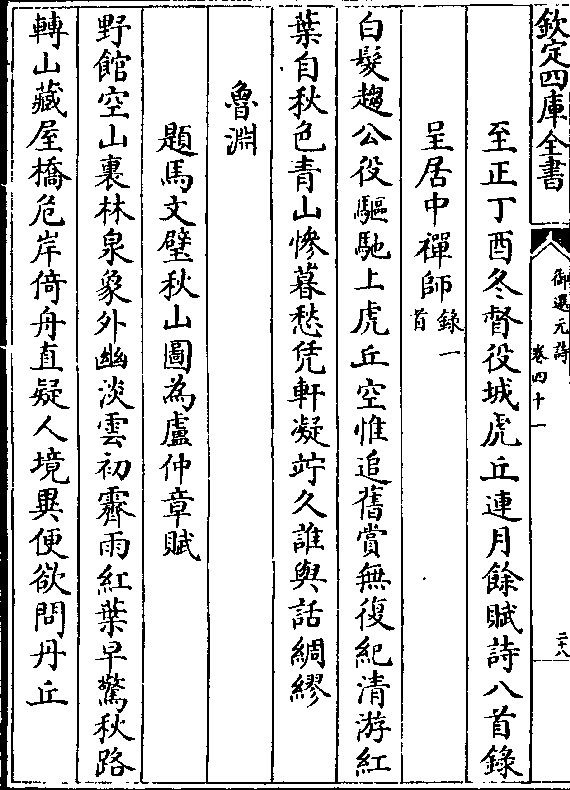 欽定四庫全書
御選元詩
卷四十一
二十八
至正丁酉冬督役城虎丘連月餘賦詩八首錄
呈居中禪師錄一首
白髮趨公役驅馳上虎丘空惟追舊賞無復紀清游紅
葉自秋色青山慘暮愁凭軒凝竚久誰與話綢繆
魯淵
題馬文璧秋山圖為盧仲章賦
野館空山裏林泉象外幽淡雲初霽雨紅葉早驚秋路
轉山藏屋橋危岸倚舟直疑人境異便欲問丹丘